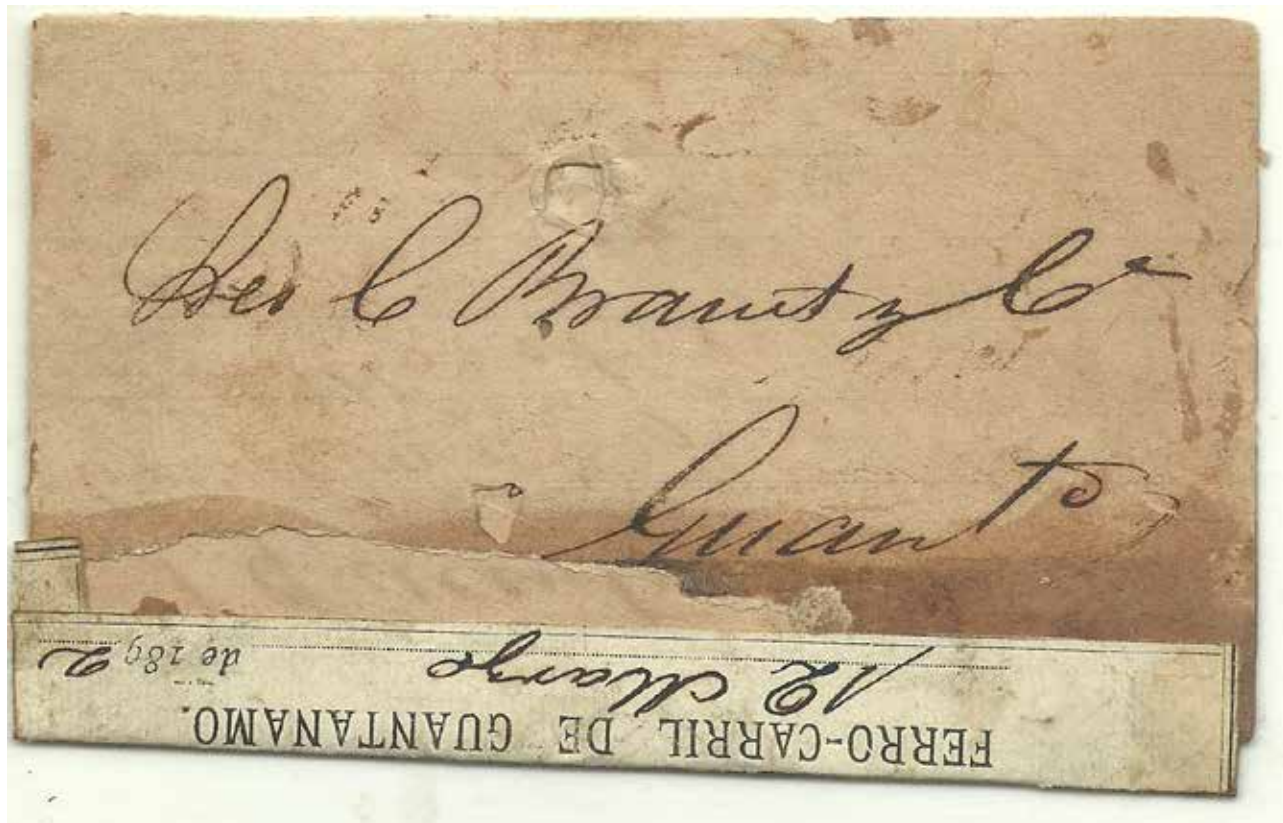 Sres C Brauet y Cª
Guantº
FERRO-CARRIL DE GUANTANAMO.
12 Marzo de 1892